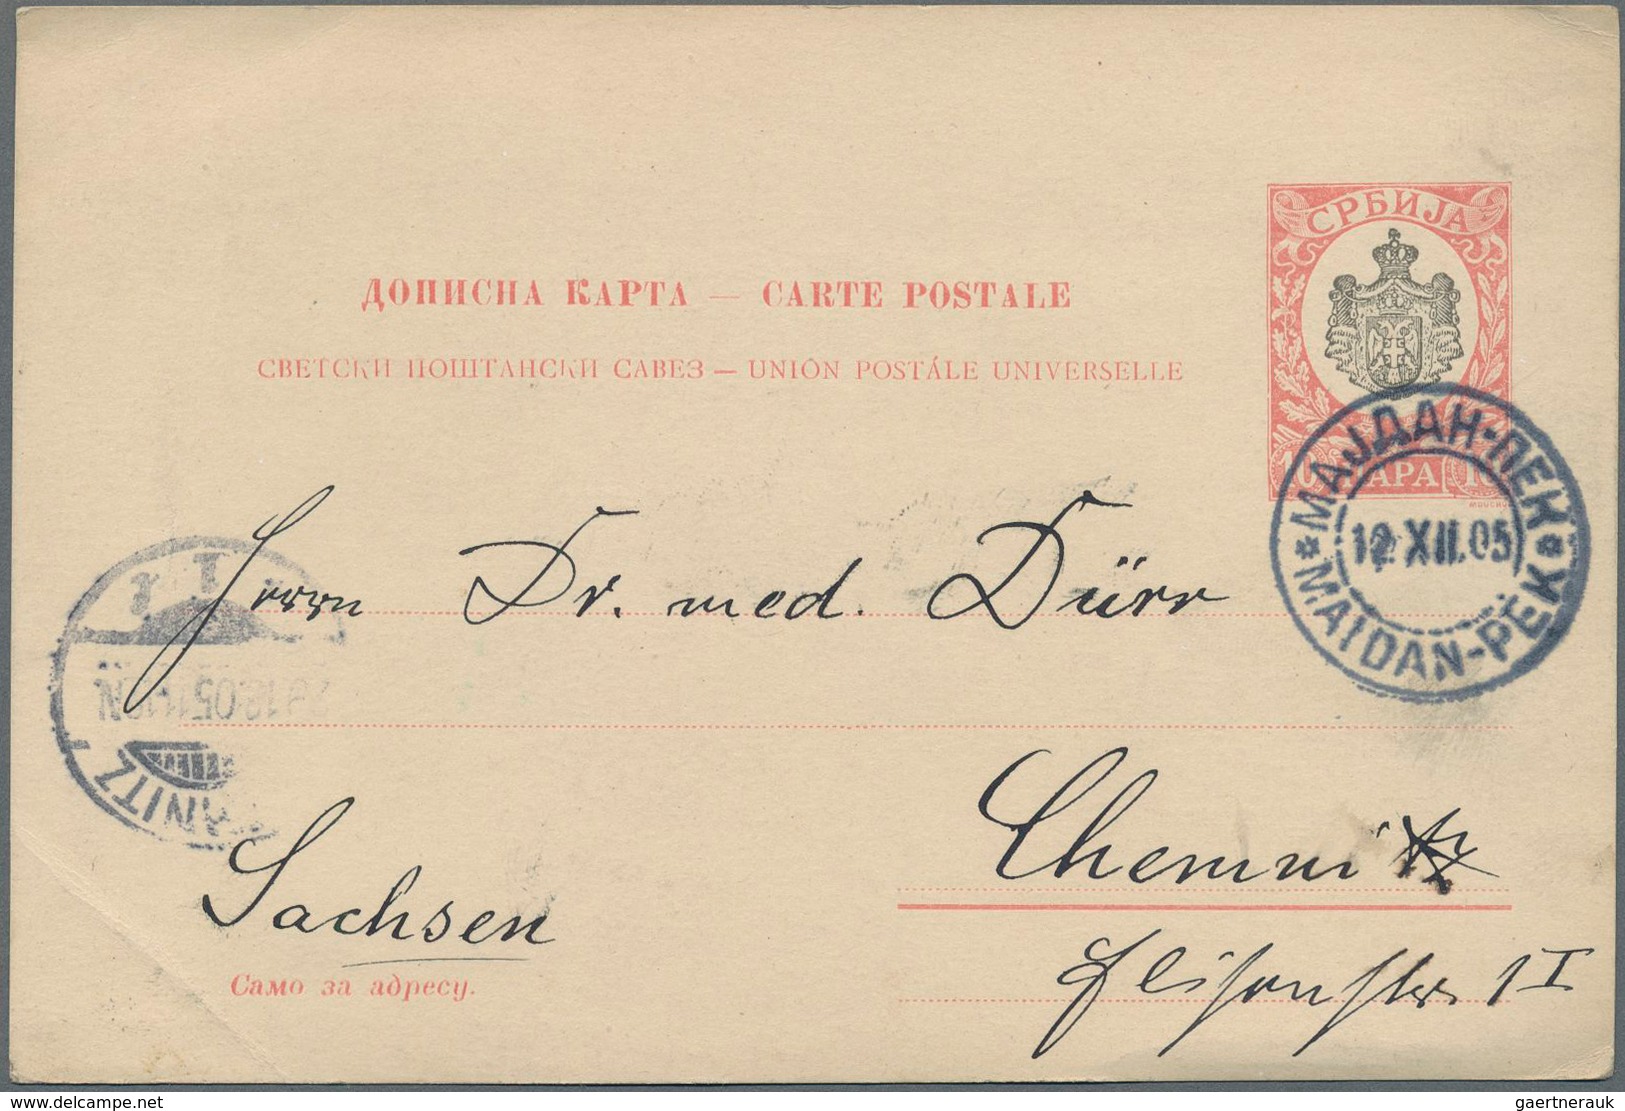 СРБИЈА
ДОПИСНА КАРТА — CARTE POSTALE
СВЕТСКИ ПОШТАНСКИ САВЕЗ — UNION POSTALE UNIVERSELLE
10 ПАРА 10
МАЈДАН-ПЕК
12 XII.05
MAIDAN-PEK
Herrn Dr. med. Dürr
Chemnitz
Sachsen
Само за адресу.
1 I
delcampe.net
gaertnerauk